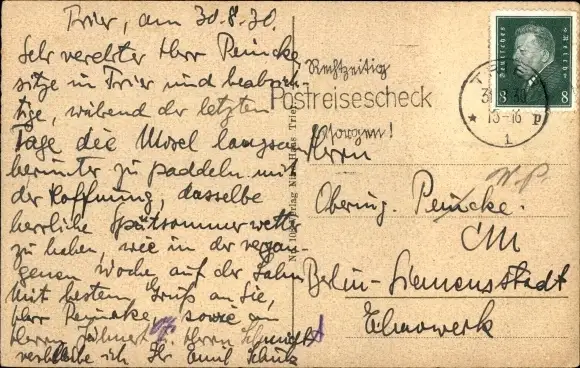 Trier, am 30.8.30.
Sehr verehrter Herr Reincke
sitze in Trier und beabsich-
tige, während der letzten
Tage die Mosel langsam
herunter zu paddeln mit
der Hoffnung, dasselbe
herrliche Spätsommerwetter
zu haben, wie in der vergan-
genen Woche auf der Lahn
Mit bestem Gruß an Sie,
Herr Reincke, sowie an
Herrn Jähnert Herrn Schmidt
verbleibe ich Ihr Emil Schulz
Rechtzeitig
Postreisescheck
besorgen!
Deutsches Reich
8 8
30 30
15-16
1
Herrn
Obering. Reincke.
W.P.
Berlin-Siemensstadt
Elmowerk